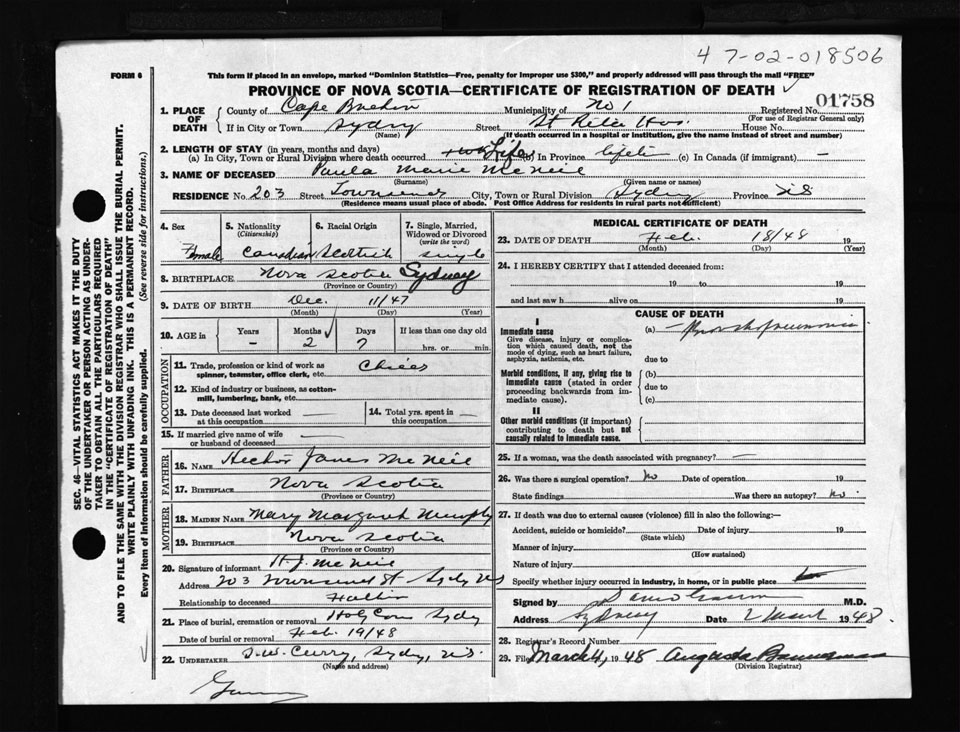 4 7-02-018506
FORM 6
This form if placed in an envelope, marked "Dominion Statistics—Free, penalty for improper use $300," and properly addressed will pass through the mail "FREE"
PROVINCE OF NOVA SCOTIA—CERTIFICATE OF REGISTRATION OF DEATH
01758
1. PLACE OF DEATH County of Cape Breton Municipality of No 1 Registered No.
(For use of Registrar General only)
If in City or Town Sydney Street St Rita Hos. House No.
(Name) (If death occurred in a hospital or institution, give the name instead of street and number)
2. LENGTH OF STAY (in years, months and days)
(a) In City, Town or Rural Division where death occurred Life (b) In Province lifetime (c) In Canada (if immigrant) —
3. NAME OF DECEASED Paula Marie McNeil
(Surname) (Given name or names)
RESIDENCE No. 203 Street Townsend City, Town or Rural Division Sydney Province NS
(Residence means usual place of abode. Post Office Address for residents in rural parts not sufficient)
4. Sex 5. Nationality (Citizenship) 6. Racial Origin 7. Single, Married, Widowed or Divorced (write the word)
Female Canadian Scottish single
8. BIRTHPLACE Nova Scotia Sydney
(Province or Country)
9. DATE OF BIRTH Dec. 11/47
(Month) (Day) (Year)
10. AGE in Years Months Days If less than one day old
– 2 7 hrs. or min.
OCCUPATION
11. Trade, profession or kind of work as spinner, teamster, office clerk, etc.
12. Kind of industry or business, as cotton-mill, lumbering, bank, etc.
13. Date deceased last worked at this occupation — 14. Total yrs. spent in this occupation —
15. If married give name of wife or husband of deceased —
FATHER
16. NAME Hector James McNeil
17. BIRTHPLACE Nova Scotia
(Province or Country)
MOTHER
18. MAIDEN NAME Mary Margaret Murphy
19. BIRTHPLACE Nova Scotia
(Province or Country)
20. Signature of informant H.J. McNeil
Address 203 Townsend St Sydney NS
Relationship to deceased Father
21. Place of burial, cremation or removal Holy Cross Sydney
Date of burial or removal Feb. 19/48
22. UNDERTAKER Curry, Sydney, N.S.
(Name and address)
MEDICAL CERTIFICATE OF DEATH
23. DATE OF DEATH Feb. 18/48 19
(Month) (Day) (Year)
24. I HEREBY CERTIFY that I attended deceased from:
19 to 19
and last saw h alive on 19
CAUSE OF DEATH
I
Immediate cause
Give disease, injury or complication which caused death, not the mode of dying, such as heart failure, asphyxia, asthenia, etc.
(a) Bronchopneumonia
due to
Morbid conditions, if any, giving rise to immediate cause (stated in order proceeding backwards from immediate cause).
(b)
due to
(c)
II
Other morbid conditions (if important) contributing to death but not causally related to immediate cause.
25. If a woman, was the death associated with pregnancy? —
26. Was there a surgical operation? No Date of operation 19
State findings Was there an autopsy? No
27. If death was due to external causes (violence) fill in also the following:—
Accident, suicide or homicide? Date of injury 19
(State which)
Manner of injury
(How sustained)
Nature of injury
Specify whether injury occurred in industry, in home, or in public place
Signed by M.D.
Address Sydney Date 2 March 1948
28. Registrar's Record Number
29. Filed March 4, 1948 Augusta Bannerman
(Division Registrar)
SEC. 46—VITAL STATISTICS ACT MAKES IT THE DUTY OF THE UNDERTAKER OR PERSON ACTING AS UNDERTAKER TO OBTAIN ALL THE PARTICULARS REQUIRED IN THE "CERTIFICATE OF REGISTRATION OF DEATH" AND TO FILE THE SAME WITH THE DIVISION REGISTRAR WHO SHALL ISSUE THE BURIAL PERMIT.
WRITE PLAINLY WITH UNFADING INK. THIS IS A PERMANENT RECORD.
Every item of information should be carefully supplied. (See reverse side for instructions.)